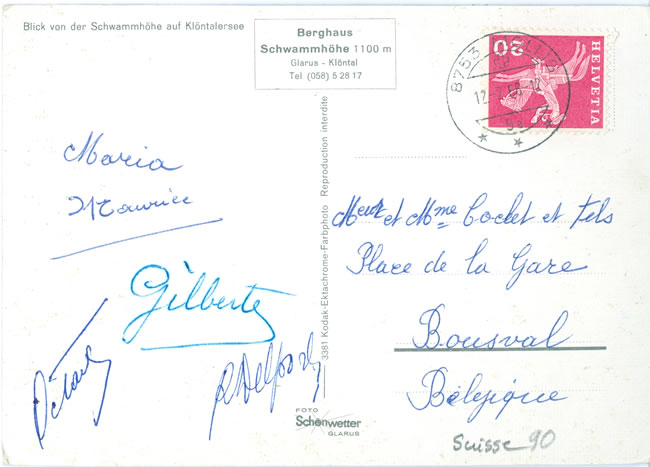 Blick von der Schwammhöhe auf Klöntalersee
Berghaus
Schwammhöhe 1100 m
Glarus - Klöntal
Tel (058) 5 28 17
HELVETIA
20
8753
12
Maria
Maurice
Gilberte
Octave
3381 Kodak-Ektachrome-Farbphoto Reproduction interdite
Meur et Mme Cochet et fils
Place de la Gare
Bousval
Belgique
FOTO
Schönwetter
GLARUS
Suisse 90